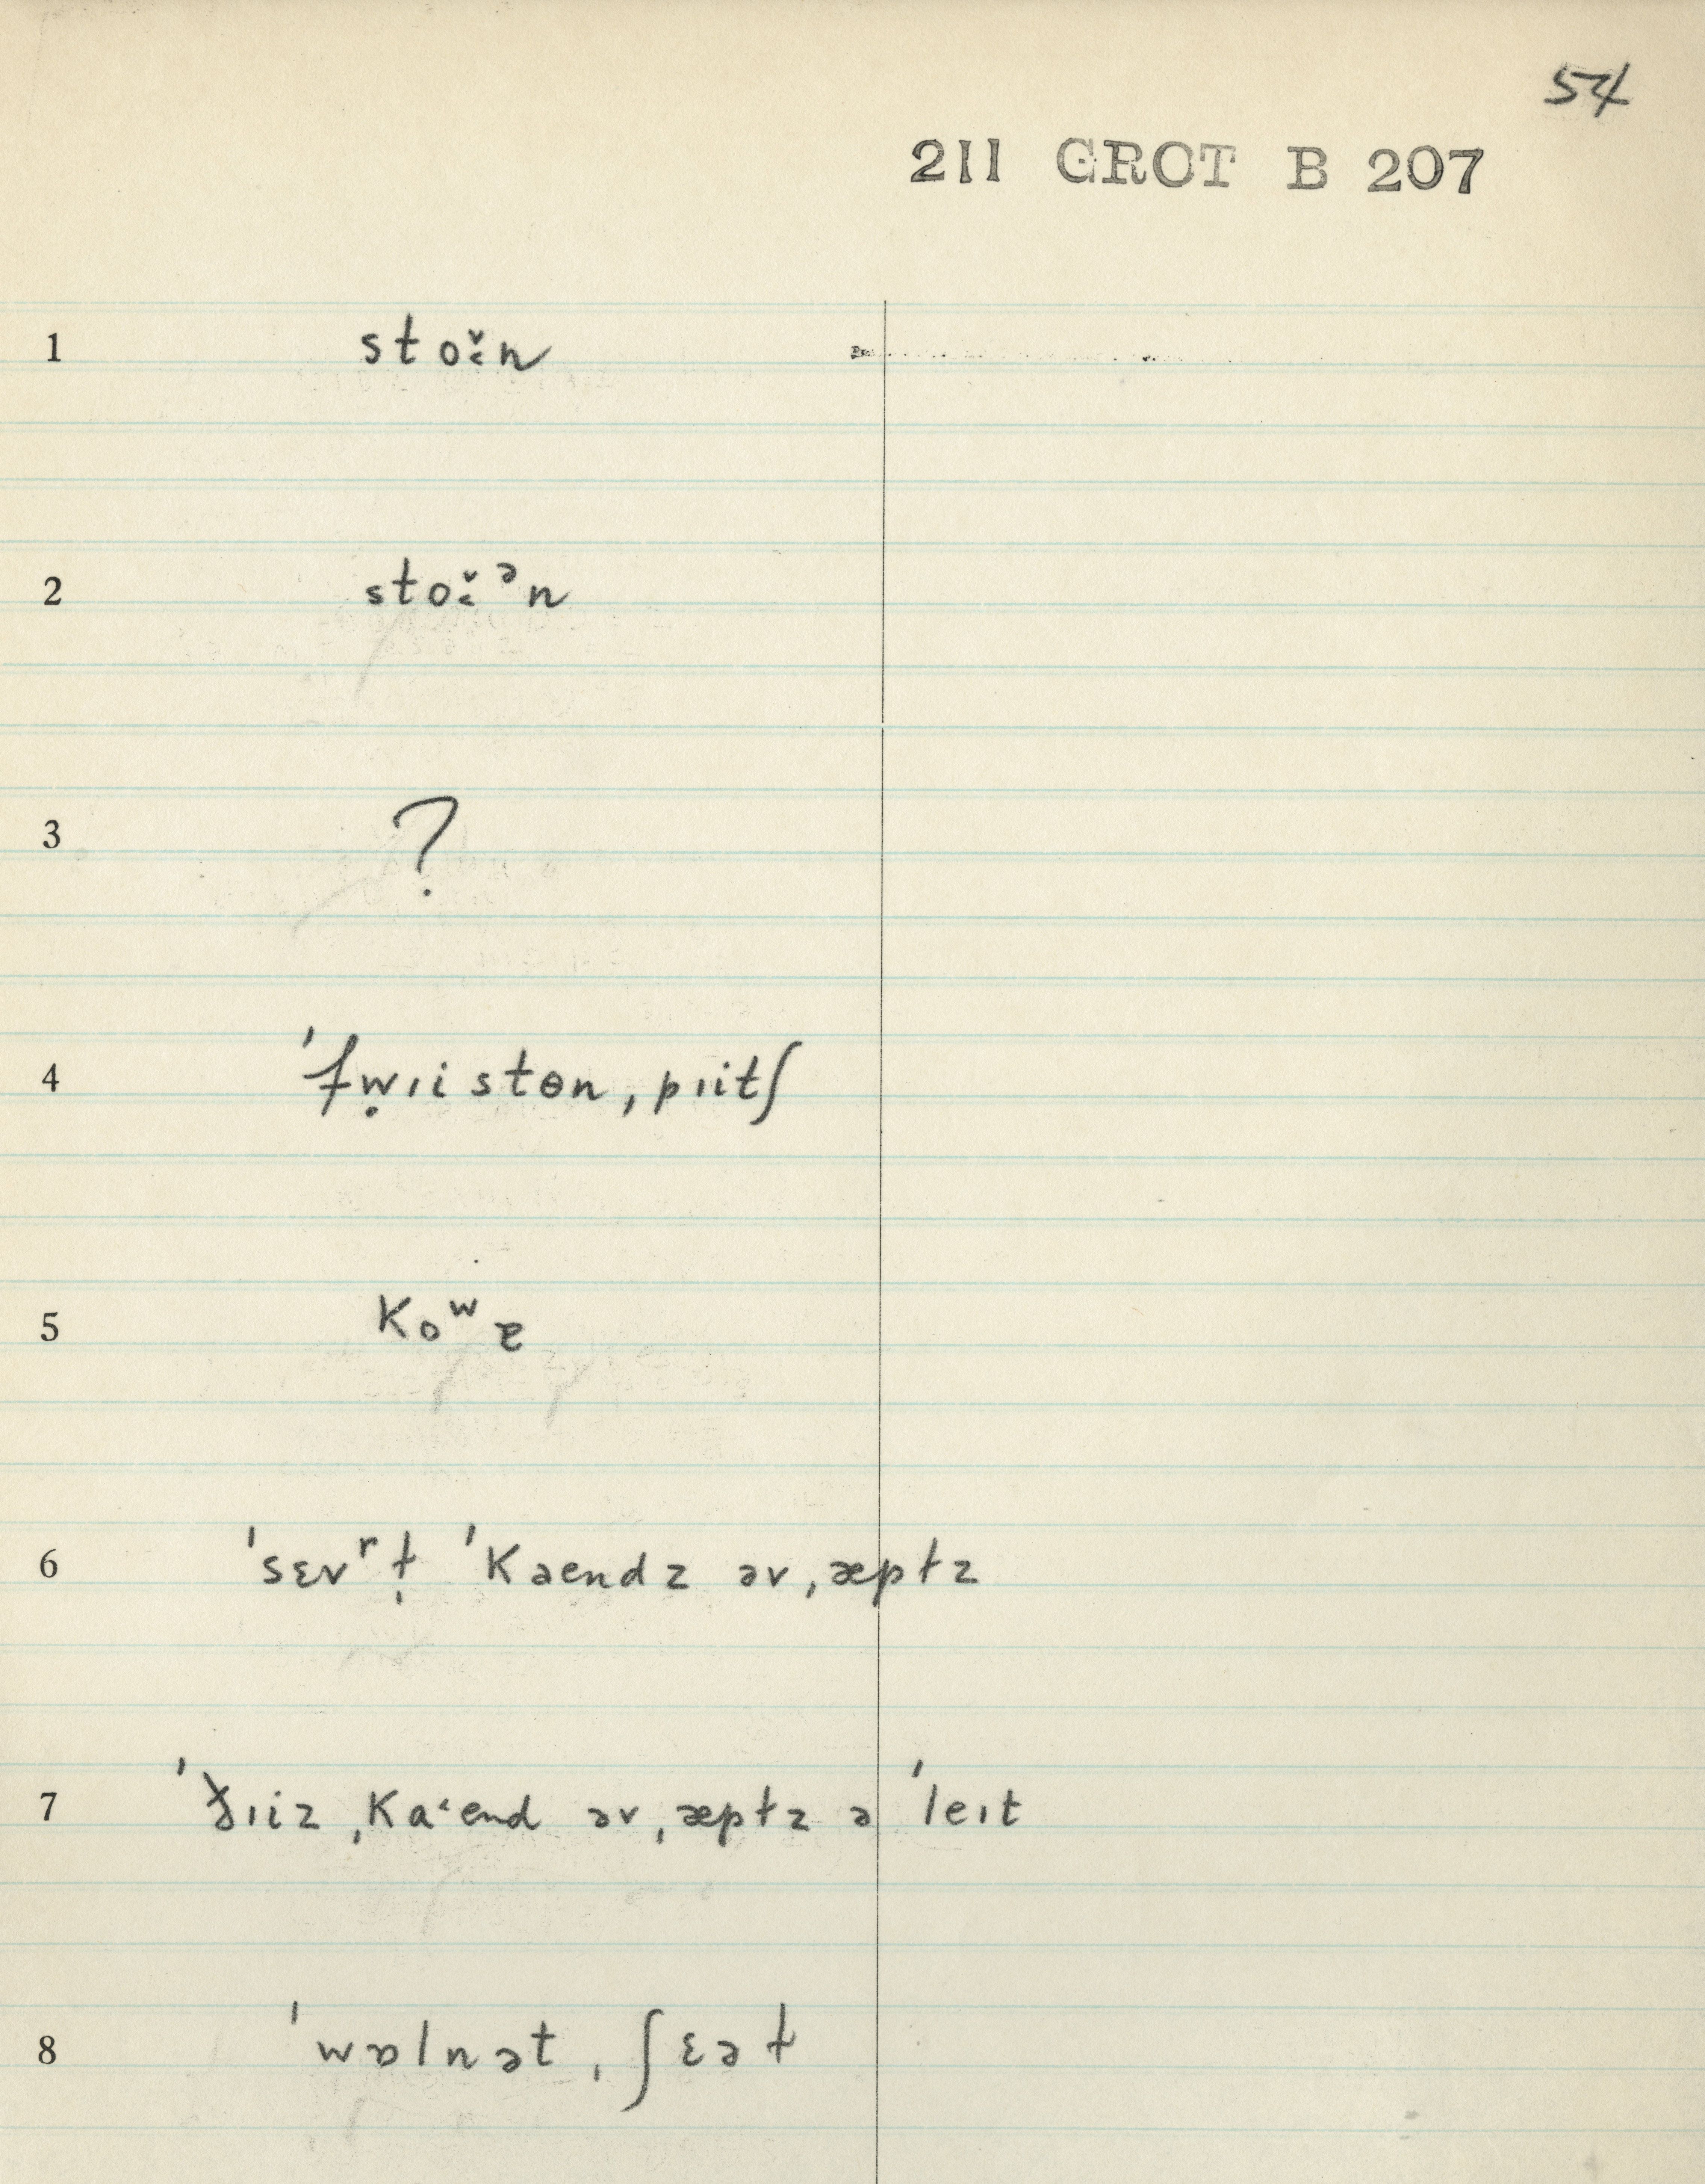 54
211 GROT B 207
1 stoɪ̆˞n
2 stoɪ̆˞ᵊn
3 ?
4 ˈfw̤ɪistɵnˌpɪitʃ
5 Koʷɐ
6 ˈsɛvʳɫ̩ ˈKaendz əvˌæpɫz
7 ˈðɪiz ˌKaˑend əvˌæpɫz ə ˈleɪt
8 ˈwɒlnətˌʃɛəɫ